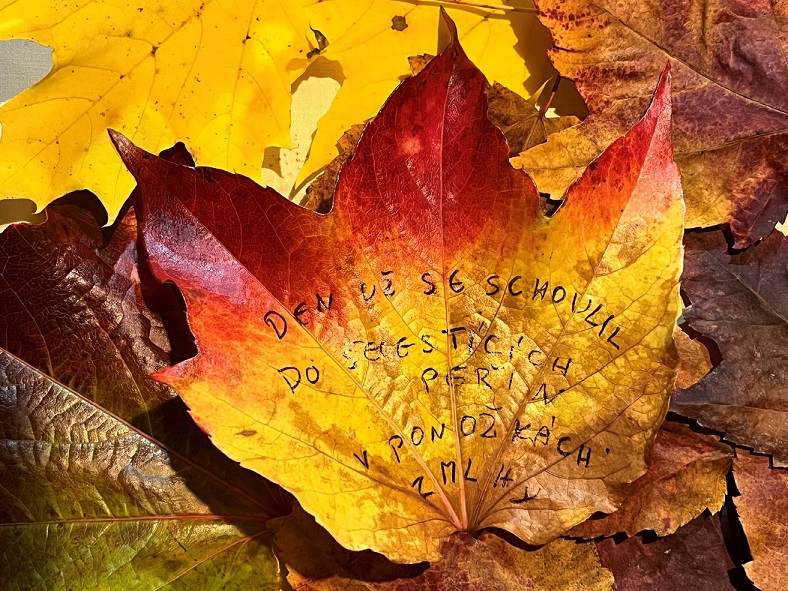 DEN UŽ SE SCHOULIL
DO ŠELESTÍCÍCH
PEŘIN
V PONOŽKÁCH
Z MLHY